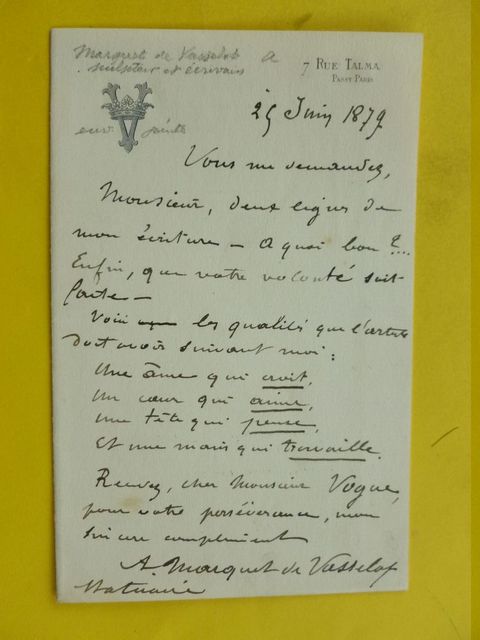 Marquet de Vasselot a
sculpteur et écrivain
7 RUE TALMA
PASSY-PARIS
env. jointe
25 Juin 1879
Vous me demandez,
Monsieur, deux lignes de
mon écriture — A quoi bon ?...
Enfin, que votre volonté soit
faite —
Voici les qualités que l'artiste
doit avoir suivant moi :
Une âme qui croit,
un cœur qui aime,
une tête qui pense,
et une main qui travaille.
Recevez, cher Monsieur Vogue,
pour votre persévérance, mon
sincère compliment
A. Marquet de Vasselot
Statuaire